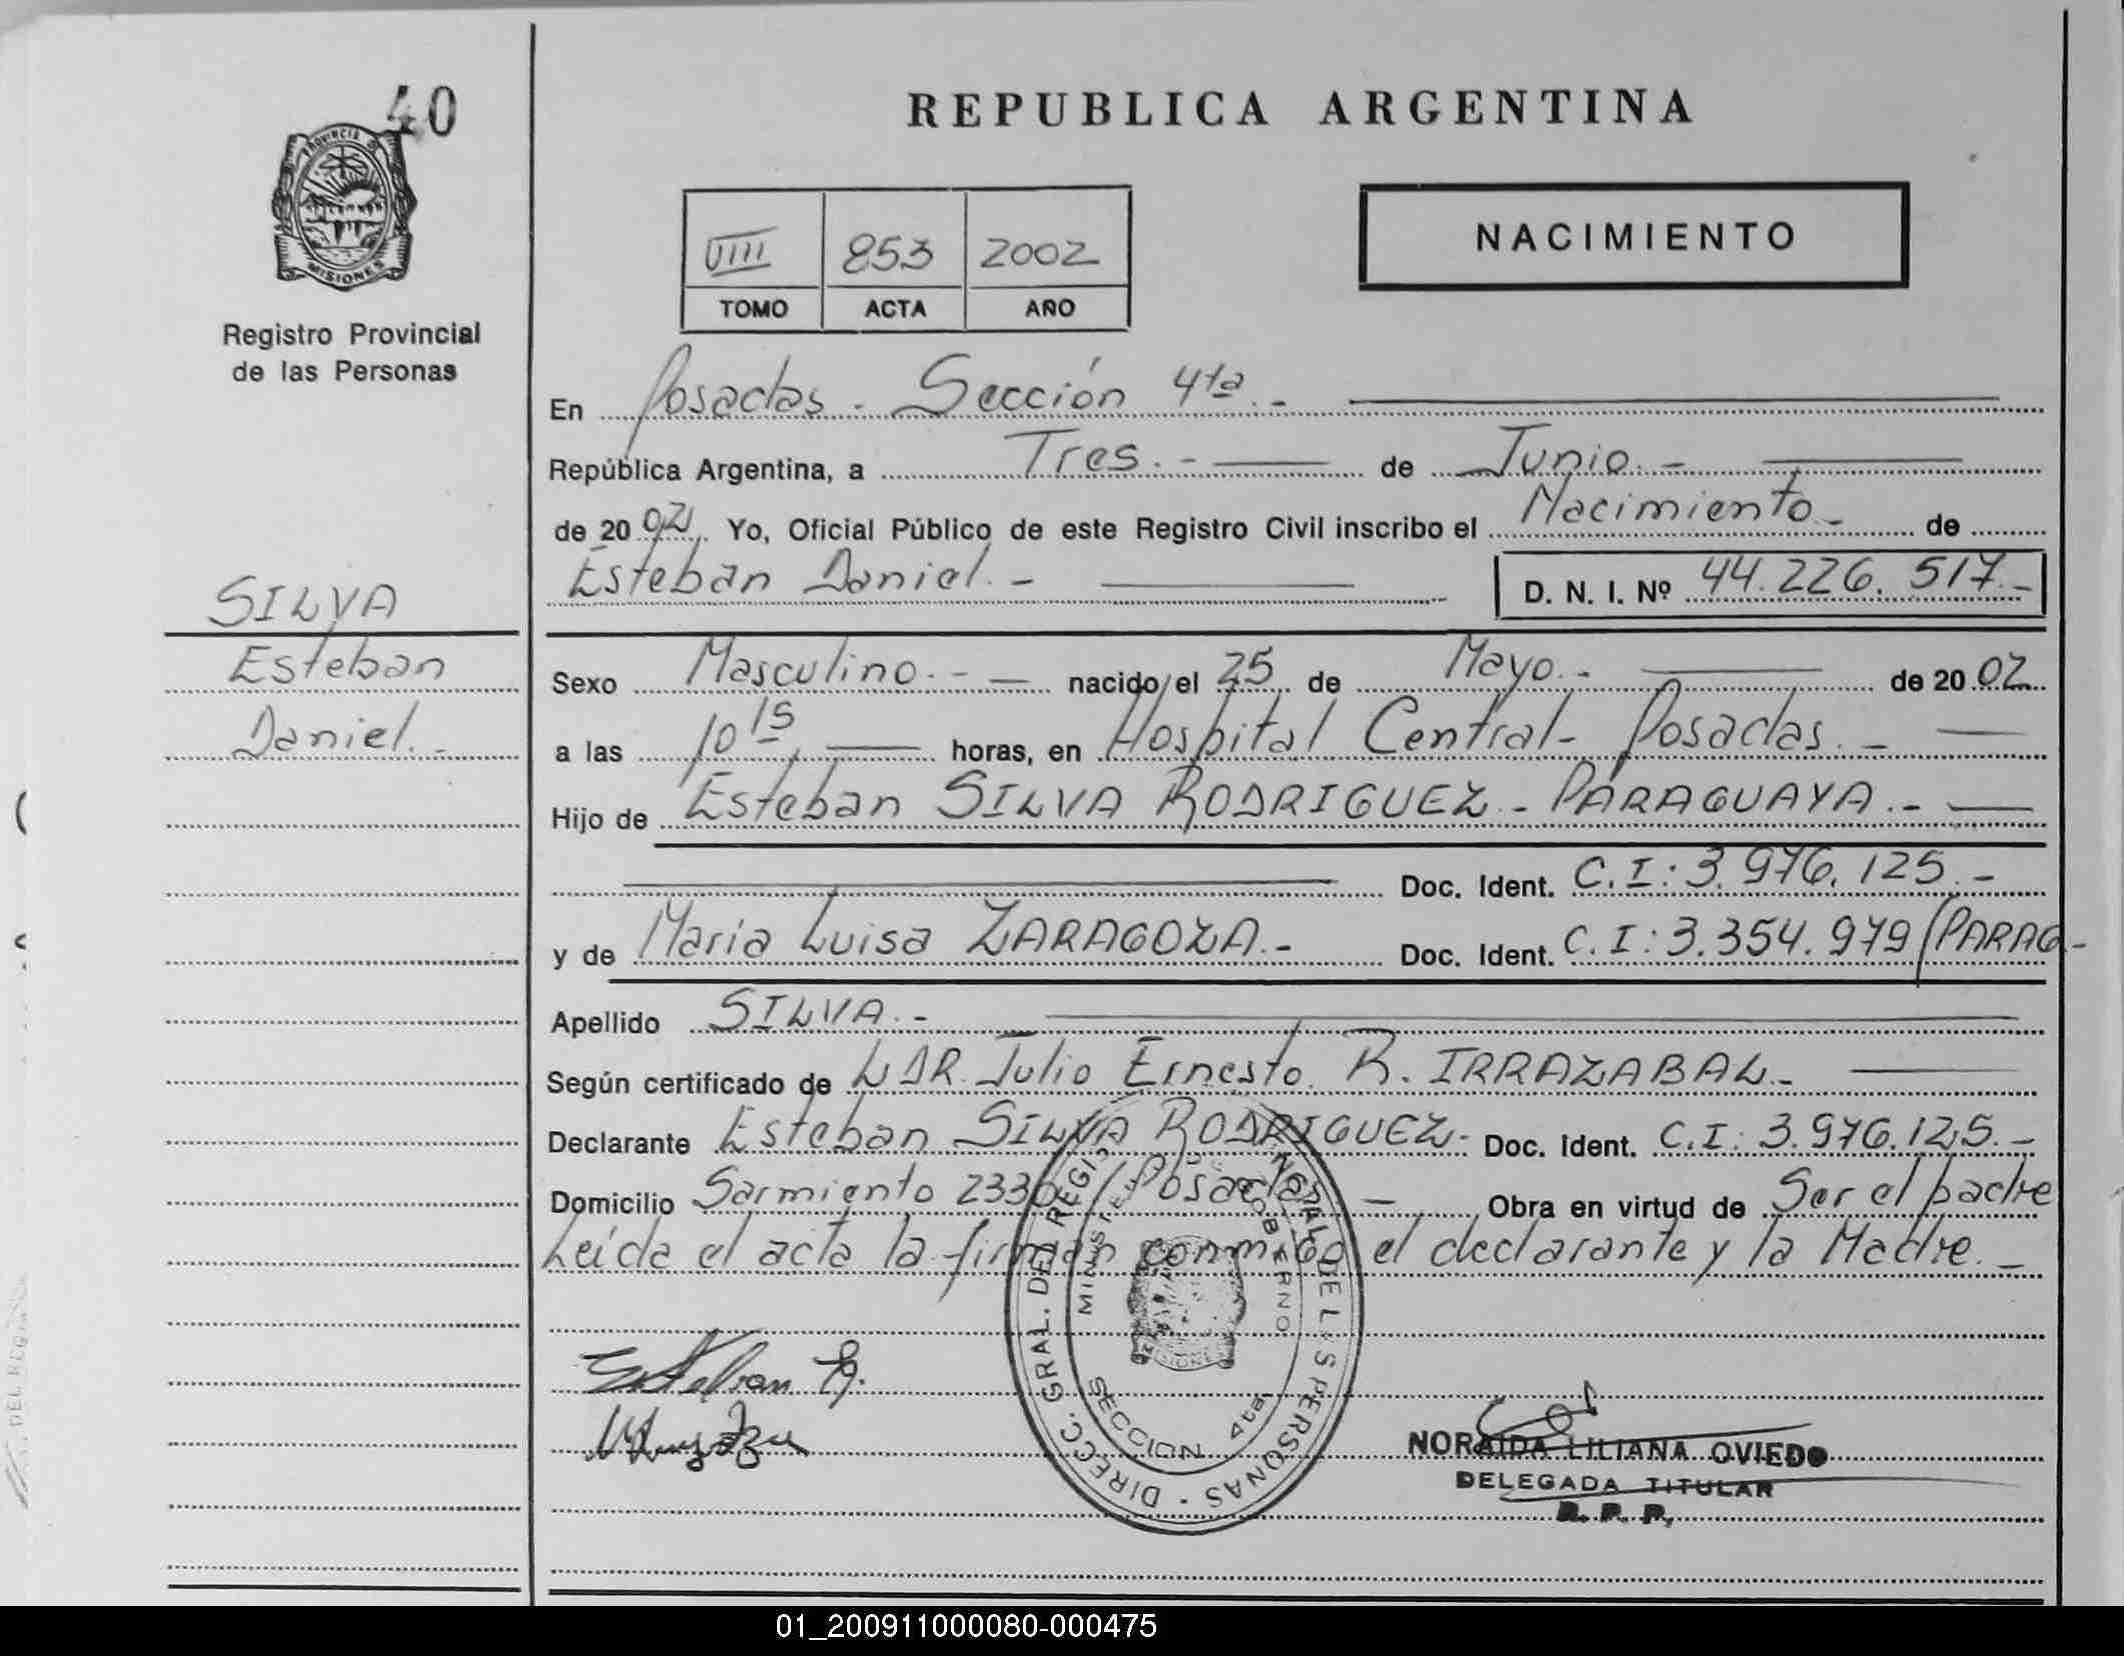 40
PROVINCIA DE
MISIONES
Registro Provincial
de las Personas
SILVA
Esteban
Daniel.-
REPUBLICA ARGENTINA
VIII 853 2002
TOMO ACTA AÑO
NACIMIENTO
En Posadas. Sección 4ta.-
República Argentina, a Tres.- de Junio.-
de 2002. Yo, Oficial Público de este Registro Civil inscribo el Nacimiento- de
Esteban Daniel.- D. N. I. Nº 44.226.517.-
Sexo Masculino.- nacido el 25 de Mayo.- de 2002
a las 10 15 horas, en Hospital Central- Posadas.-
Hijo de Esteban SILVA RODRIGUEZ- PARAGUAYA.-
Doc. Ident. C.I: 3.976.125.-
y de María Luisa ZARAGOZA.- Doc. Ident. C.I: 3.354.979/PARAG-
Apellido SILVA.-
Según certificado de Julio Ernesto R. IRRAZABAL-
Declarante Esteban SILVA RODRIGUEZ- Doc. Ident. C.I: 3.976.125.-
Domicilio Sarmiento 2336/Posadas- Obra en virtud de Ser el padre
Leída el acta la firman conmigo el declarante y la Madre.-
DIRECC. GRAL. DEL REGIS PERSONAS
MINIST GOBIERNO
MISIONES
SECCION 4ta
Esteban
NORAIDA LILIANA OVIEDO
DELEGADA TITULAR
R. P. P.
01_200911000080-000475